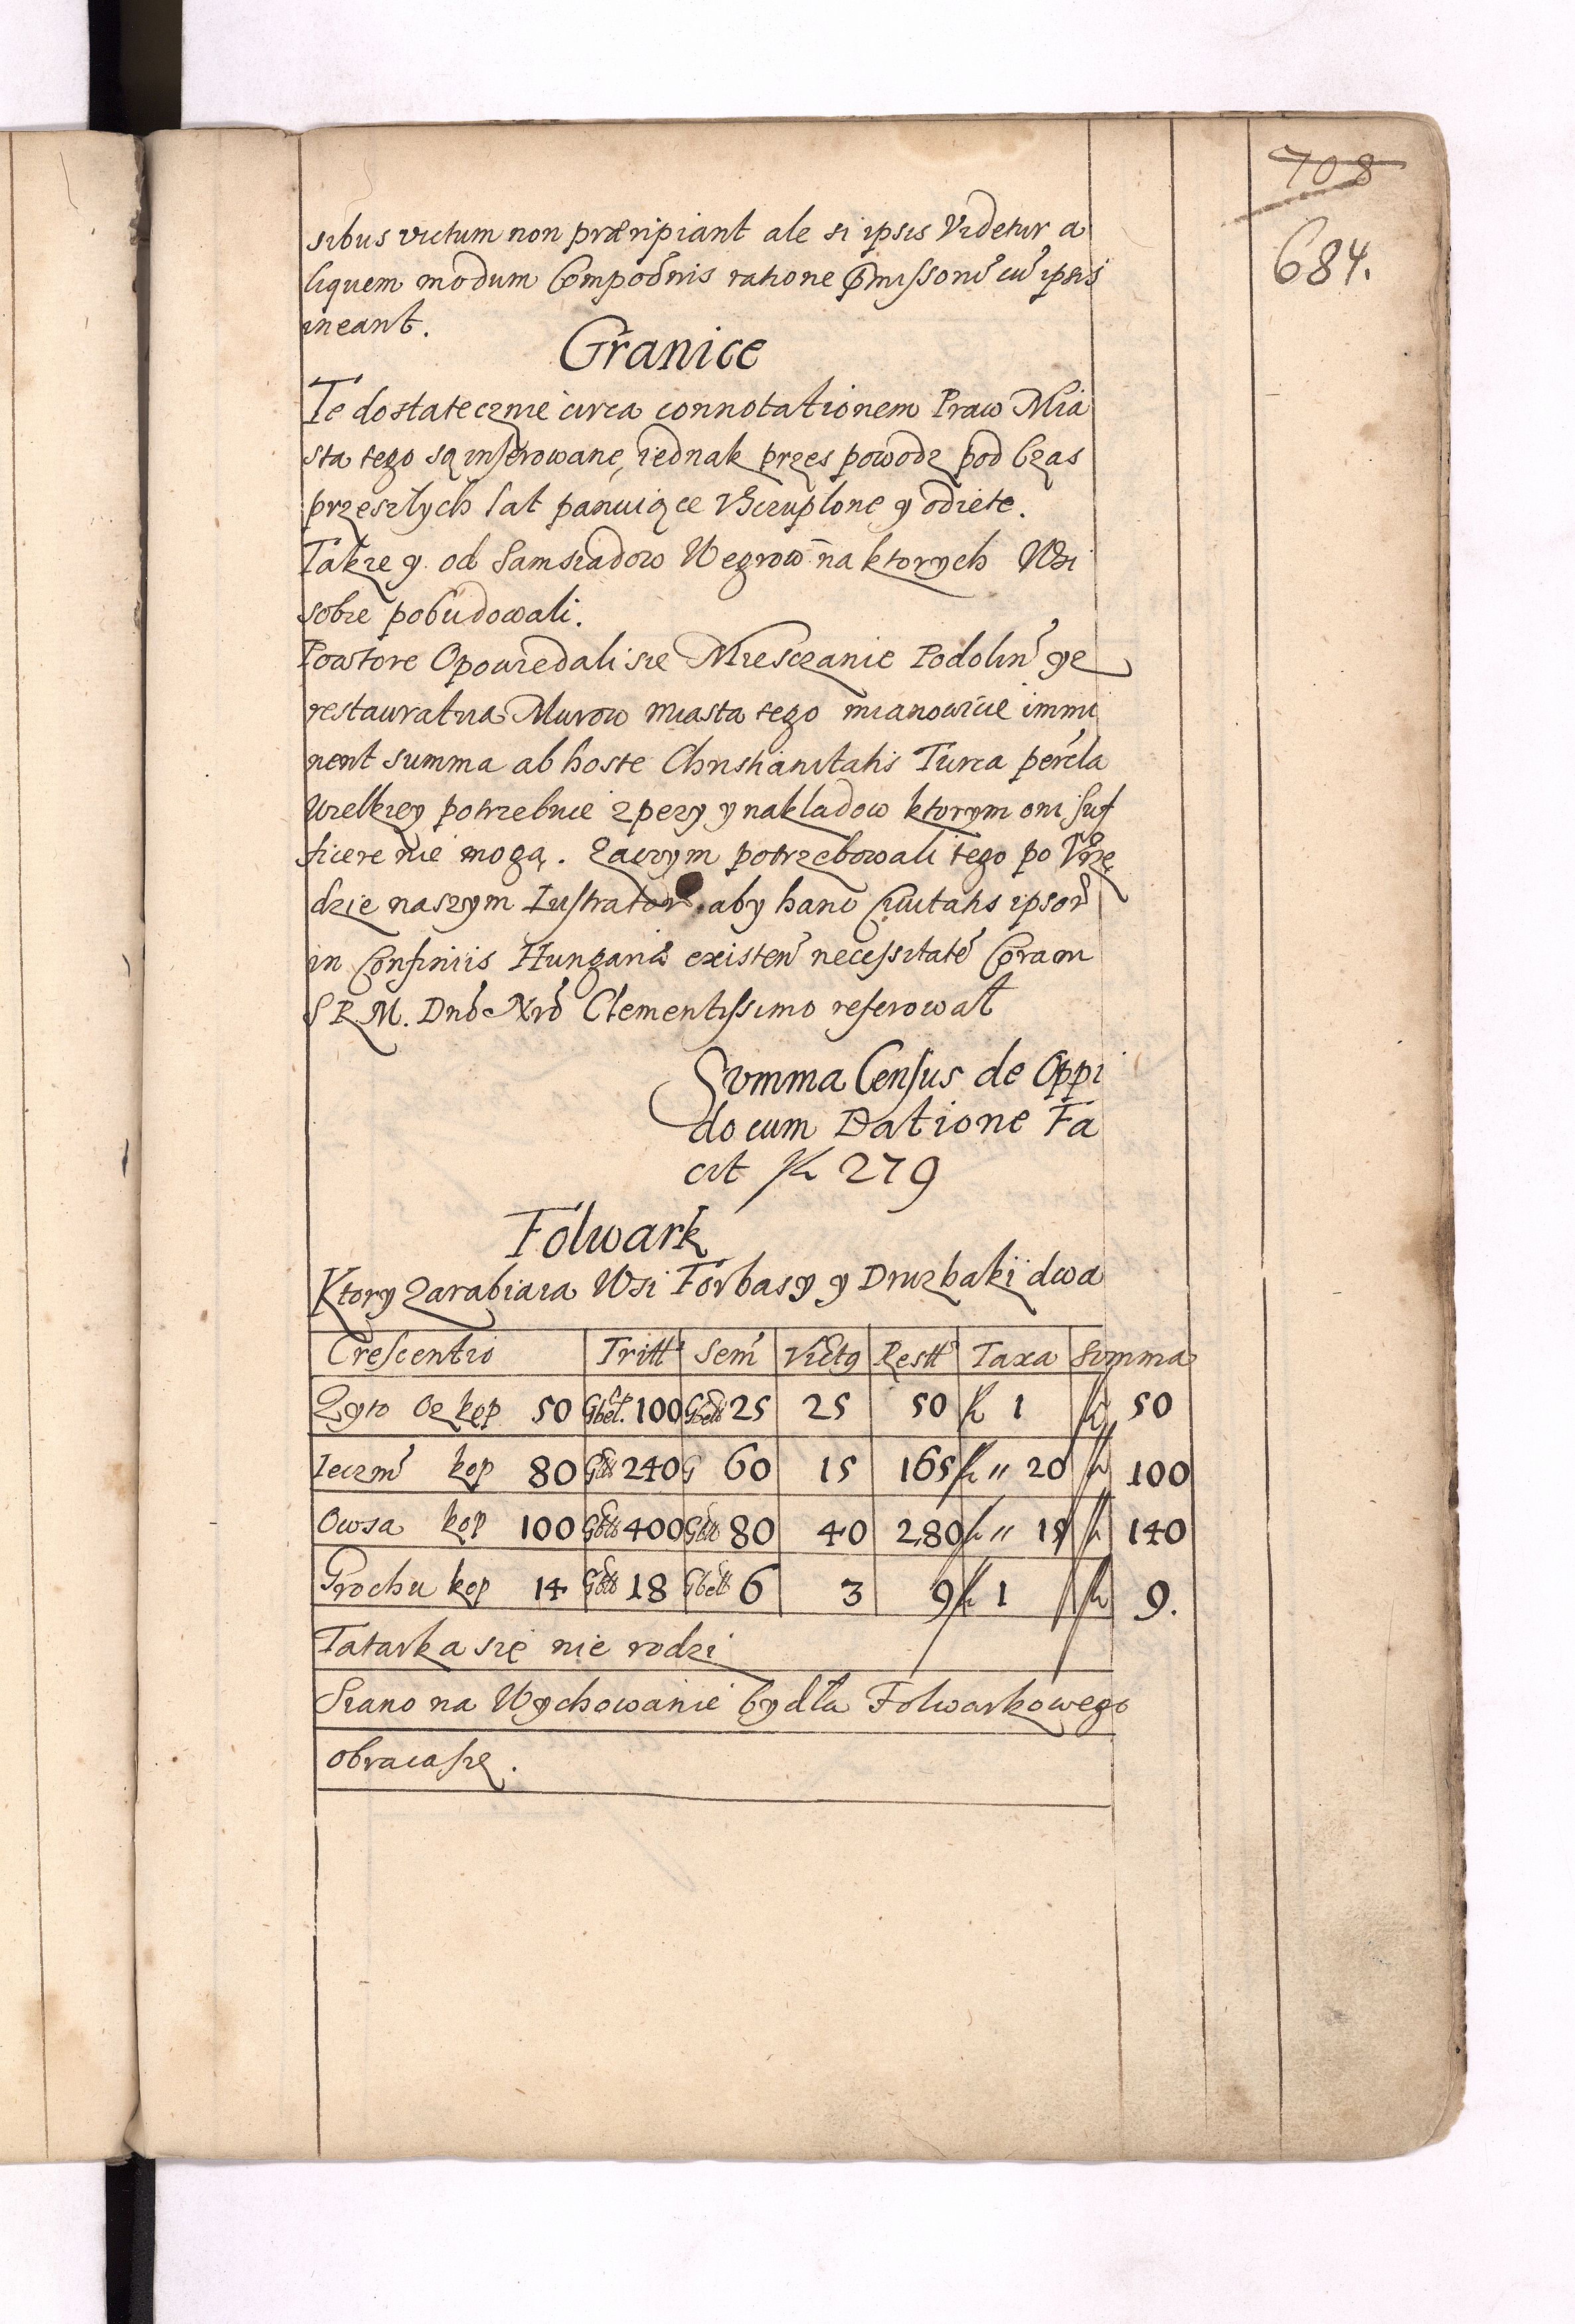 708
684.
sibus victum non præripiant ale si ipsis Videtur a
liquem modum Compoñis ratione Pmissorũ cũ ipsis
ineant.
Granice
Te dostatecznie circa connotationem Praw Mia
sta tego są inserowane, iednak przes powodz pod Czas
przeszlych lat panuiące Vszczuplone y odiete.
Takze y od Samsiadow Wegrow na ktorych Wsi
sobie pobudowali.
Powtore Opowiedali sie Miesczanie Podolin ye
restauratia Murow miasta tego mianowicie immi
nent summa ab hoste Christianitatis Turca pericla
Wielkiey potrzebuie zpezy y nakladow ktorym oni suf
ficere nie mogą. Zaczym potrzebowali tego po Vrzę
dzie naszym Lustrator aby hanc Ciuitatis ipsor
in Confiniis Hungariæ existen necessitatē Coram
S R M. Dnō Nrō Clementissimo referowal
Summa Census de Oppi
do cum Datione Fa
cit 279
Folwark
Ktory Zarabiaia Wsi Forbasy y Druzbaki dwa
Crescentio Tritt Sem Victg Restt Taxa Summa
Zyto Oz kop 50 Gbel. 100 Gbell 25 25 50 1 50
Ieczm kop 80 Gbll 240 G 60 15 165 " 20 100
Owsa kop 100 Gbll 400 Gbll 80 40 280 " 15 140
Grochu kop 14 Gbll 18 Gbell 6 3 9 1 9.
Tatarka się nie rodzi
Siano na Wychowanie bydla Folwarkowego
obraca się.